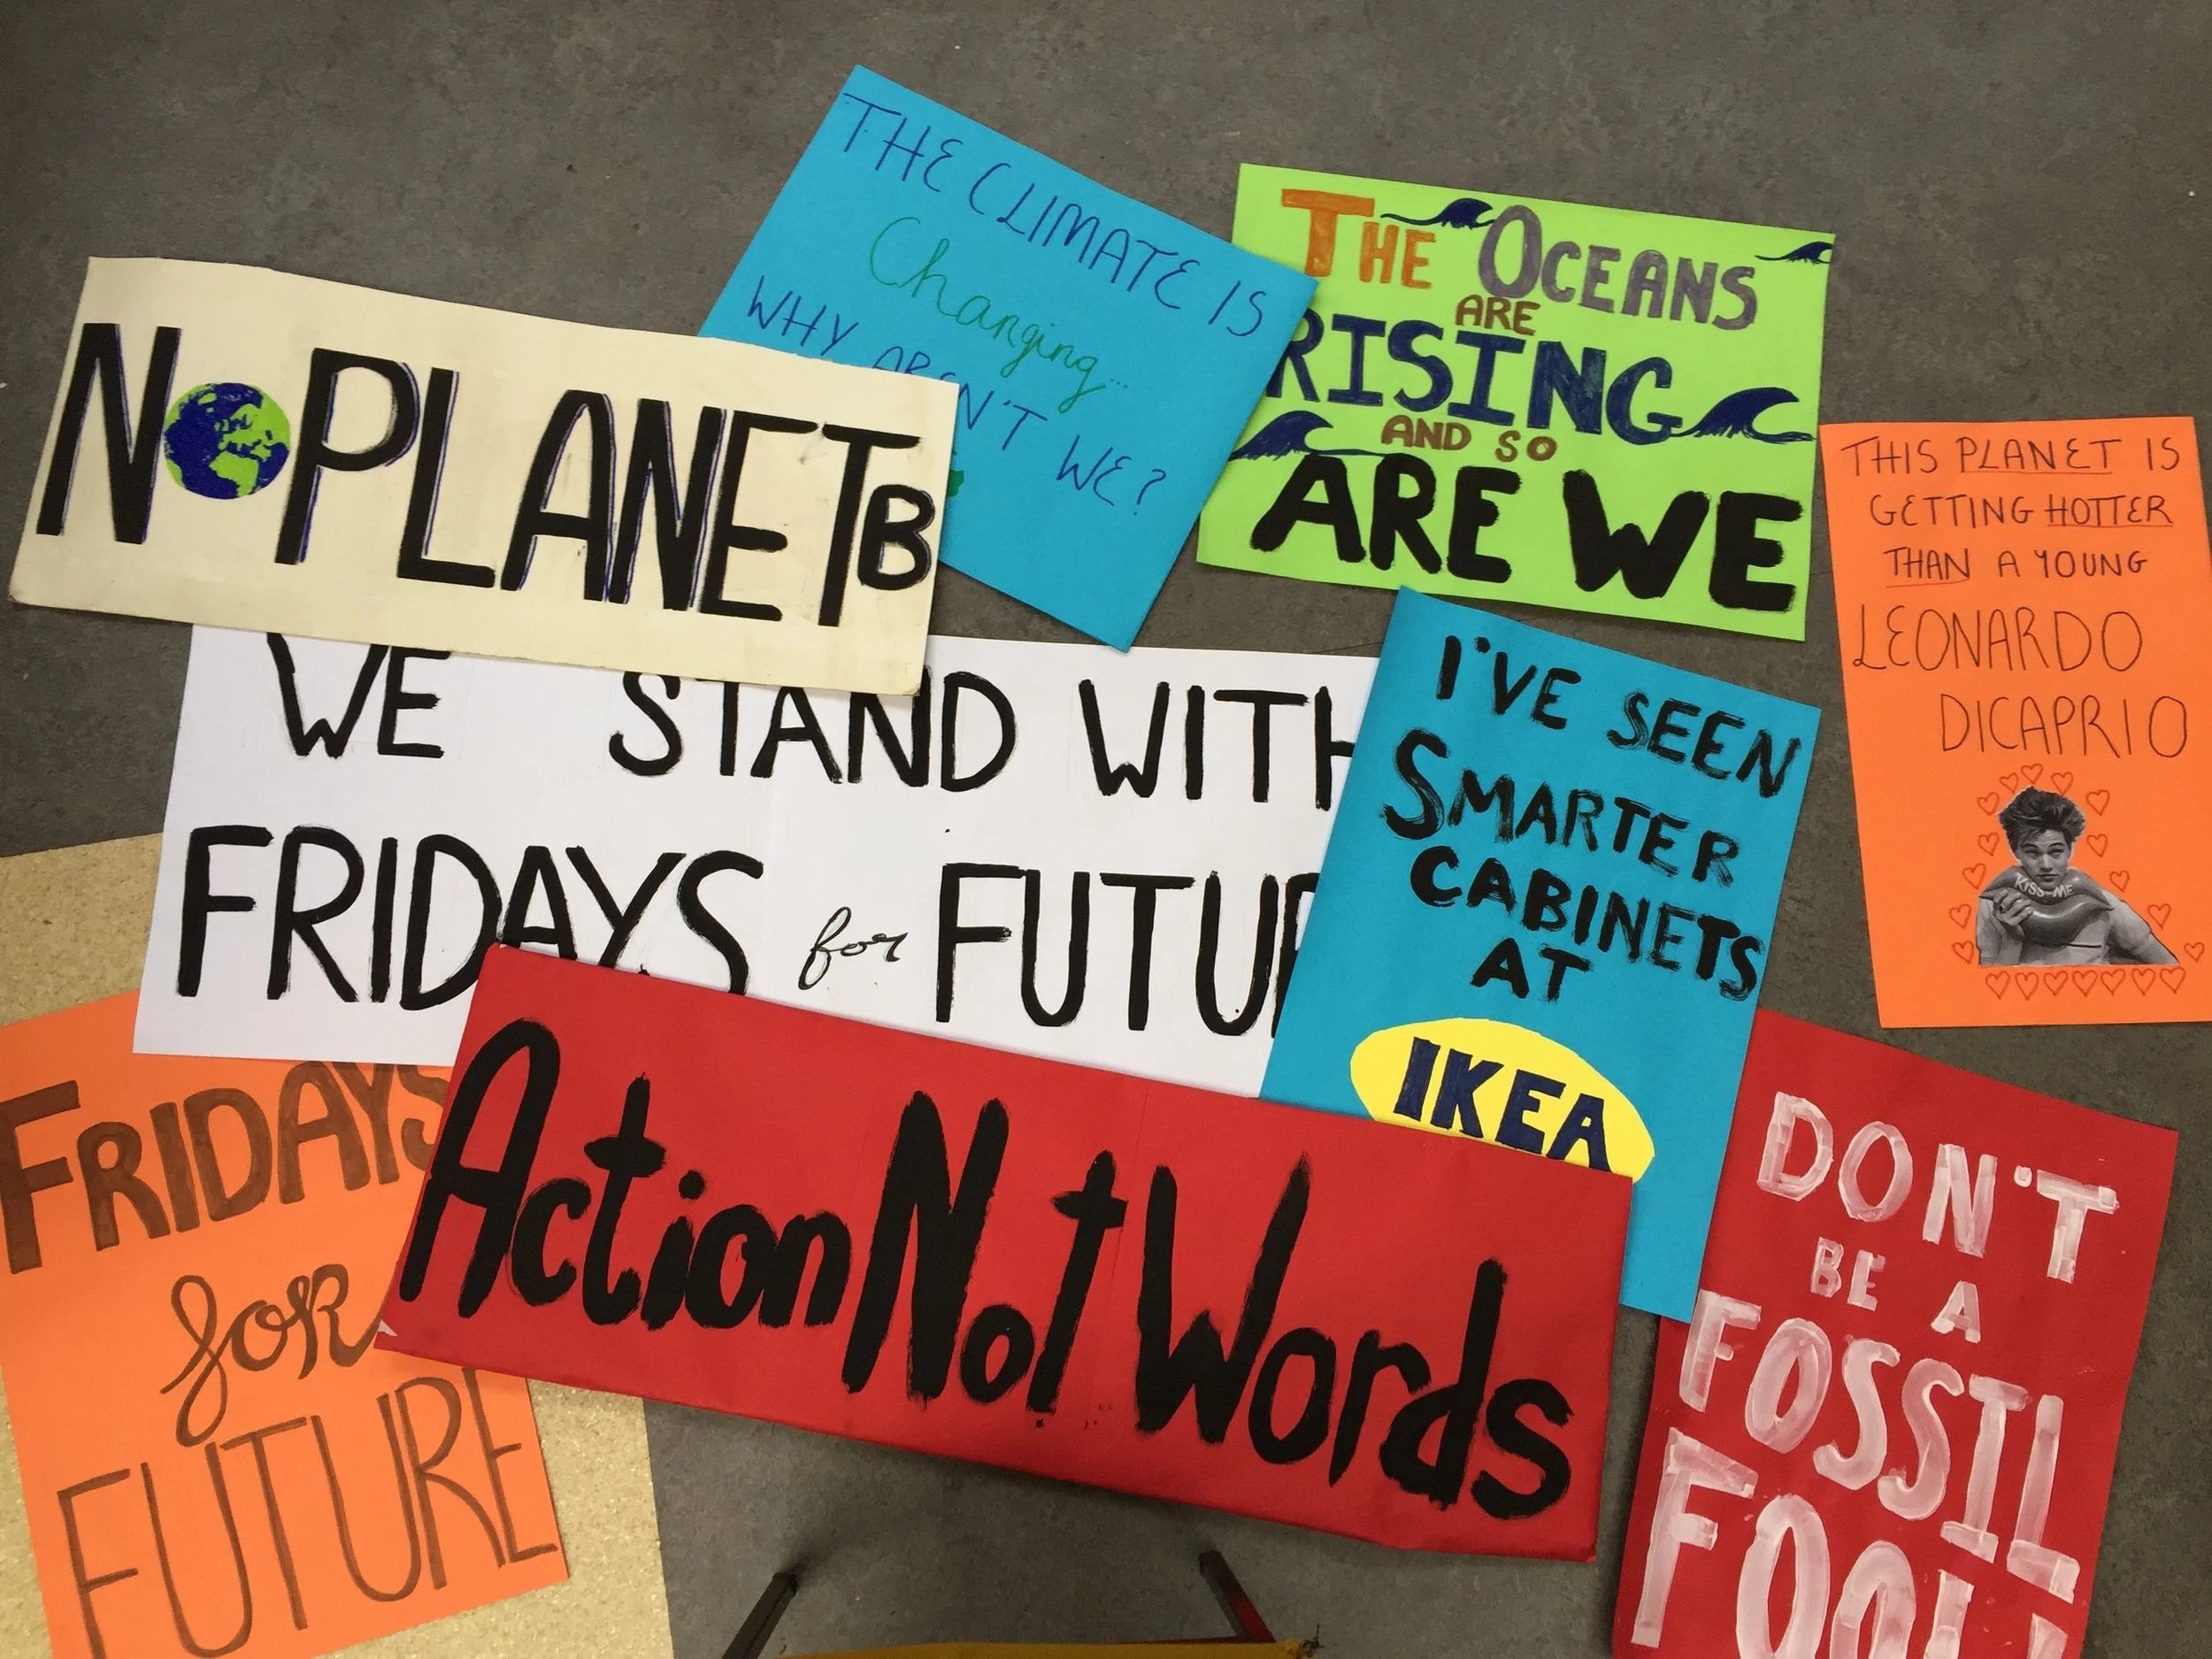 THE CLIMATE IS
Changing...
WHY AREN'T WE?
THE OCEANS
ARE
RISING
AND SO
ARE WE
NO PLANET B
THIS PLANET IS
GETTING HOTTER
THAN A YOUNG
LEONARDO
DICAPRIO
KISS ME
WE STAND WITH
FRIDAYS for FUTUR
I'VE SEEN
SMARTER
CABINETS
AT
IKEA
FRIDAYS
for
FUTURE
Action Not Words
DON'T
BE A
FOSSIL
FOOL